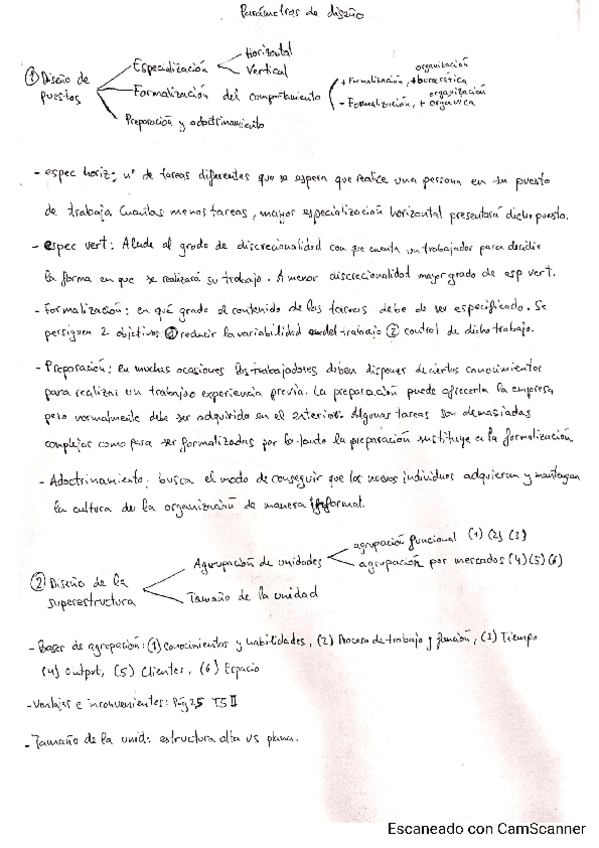 Parámetros de diseño
① Diseño de puestos
Especialización
Horizontal
Vertical
Formalización del comportamiento
+ Formalización, + burocrática organización
- Formalización, + orgánica organización
Preparación y adoctrinamiento
- espec horiz: nº de tareas diferentes que se espera que realice una persona en su puesto
de trabajo. Cuantas menos tareas, mayor especialización horizontal presentará dicho puesto.
- espec vert: Alude al grado de discrecionalidad con que cuenta un trabajador para decidir
la forma en que se realizará su trabajo. A menor discrecionalidad mayor grado de esp vert.
- Formalización: en qué grado el contenido de las tareas debe de ser especificado. Se
persiguen 2 objetivos: ① reducir la variabilidad del trabajo ② control de dicho trabajo.
- Preparación: en muchas ocasiones los trabajadores deben disponer de ciertos conocimientos
para realizar un trabajo o experiencia previa. La preparación puede ofrecerla la empresa
pero normalmente debe ser adquirido en el exterior. Algunas tareas son demasiadas
complejas como para ser formalizadas por lo tanto la preparación sustituye a la formalización
- Adoctrinamiento: busca el modo de conseguir que los nuevos individuos adquieran y mantengan
la cultura de la organización de manera informal.
② Diseño de la superestructura
Agrupación de unidades
agrupación funcional (1) (2) (3)
agrupación por mercados (4) (5) (6)
Tamaño de la unidad
- Bases de agrupación: (1) Conocimientos y habilidades, (2) Proceso de trabajo y función, (3) Tiempo
(4) Output, (5) Clientes, (6) Espacio
- Ventajas e inconvenientes: Pág 25 T5 II
- Tamaño de la unid: estructura alta vs plana.
Escaneado con CamScanner